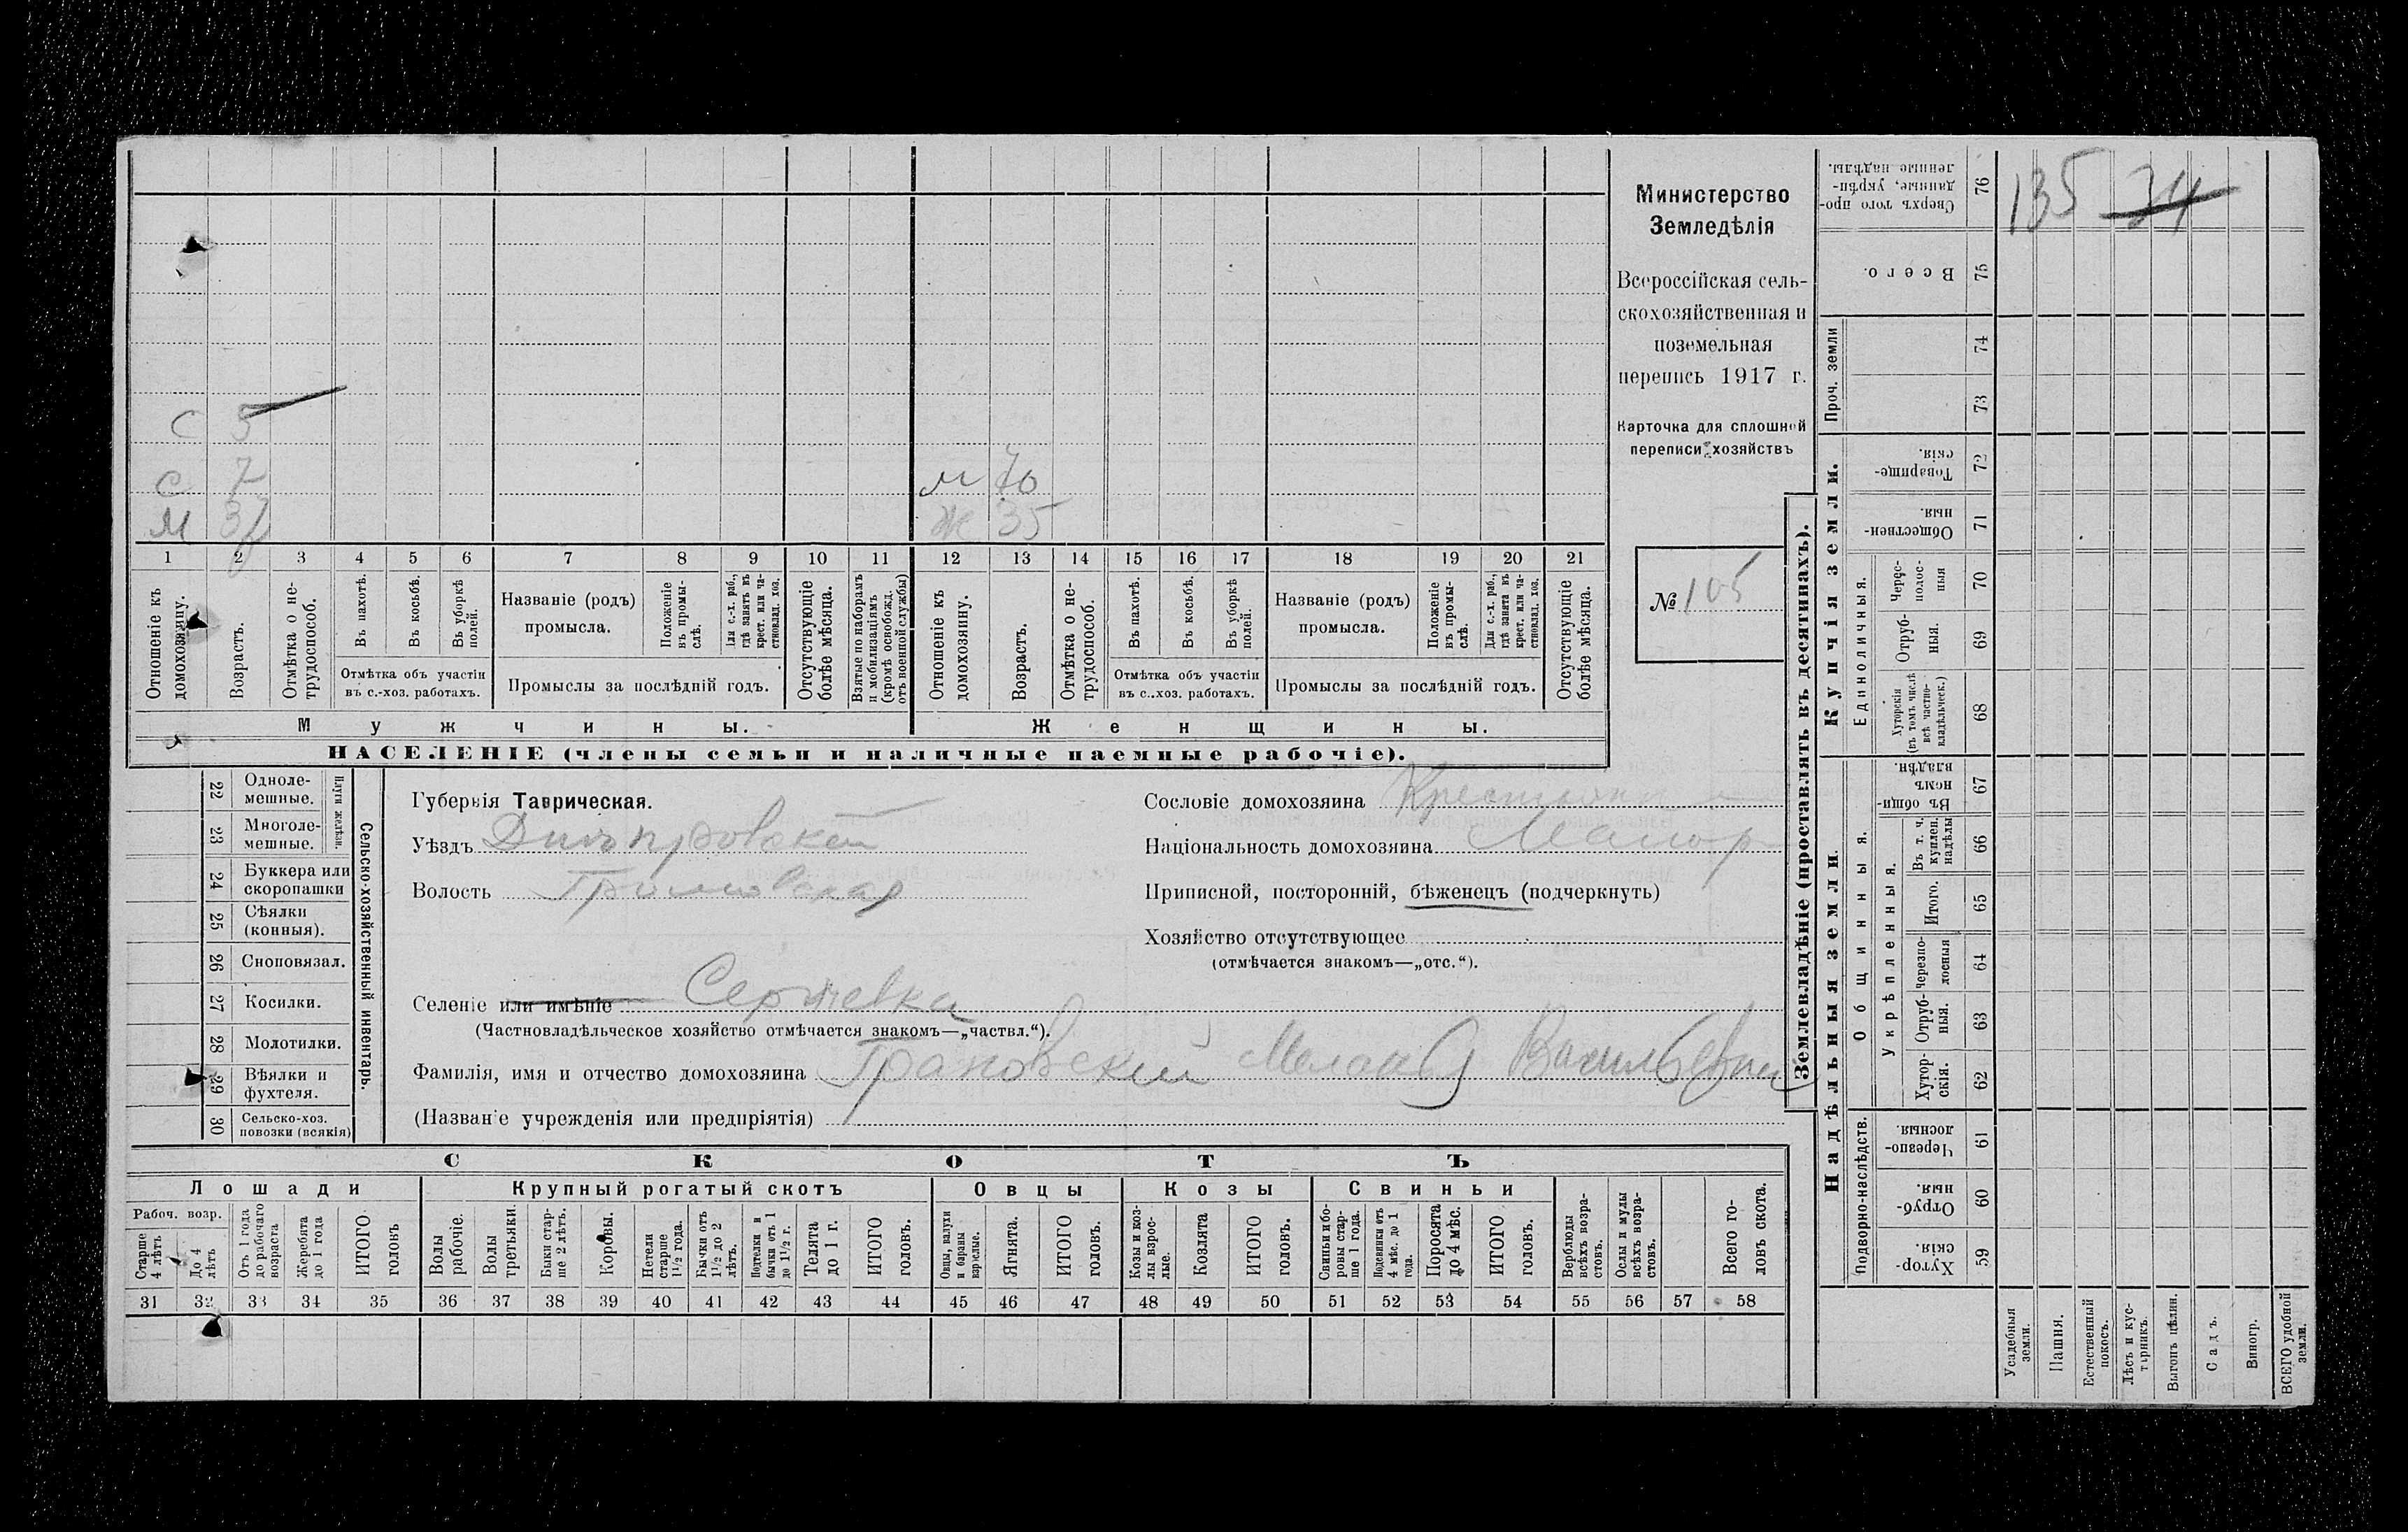 Министерство
Земледѣлія
Всероссійская сель-
скохозяйственная и
поземельная
перепись 1917 г.
Карточка для сплошной
переписи хозяйствъ
№ 105
135 34
С 5
С 7
М
М 70
Ж 35
1 2 3 4 5 6 7 8 9 10 11 12 13 14 15 16 17 18 19 20 21
Отношеніе къ домохозяину.
Возрастъ.
Отмѣтка о не-трудоспособ.
Въ пахотѣ.
Въ косьбѣ.
Въ уборкѣ полей.
Отмѣтка объ участіи
въ с.-хоз. работахъ.
Названіе (родъ)
промысла.
Положеніе въ промы-слѣ.
Для с.-х. раб., гдѣ занятъ въ крест. или ча-стновлад. хоз.
Промыслы за послѣдній годъ.
Отсутствующіе болѣе мѣсяца.
Взятые по наборамъ и мобилизаціямъ (кромѣ освобожд. отъ военной службы)
Отношеніе къ домохозяину.
Возрастъ.
Отмѣтка о не-трудоспособ.
Въ пахотѣ.
Въ косьбѣ.
Въ уборкѣ полей.
Отмѣтка объ участіи
въ с..хоз. работахъ.
Названіе (родъ)
промысла.
Положеніе въ промы-слѣ.
Для с.-х. раб., гдѣ занята въ крест. или ча-стновлад. хоз.
Промыслы за послѣдній годъ.
Отсутствующіе болѣе мѣсяца.
Мужчины.
Женщины.
НАСЕЛЕНІЕ (члены семьи и наличные наемные рабочіе).
Сельско-хозяйственный инвентарь.
Плуги желѣзн.
22 Одноле-мешные.
23 Многоле-мешные.
24 Буккера или скоропашки
25 Сѣялки (конныя).
26 Сноповязал.
27 Косилки.
28 Молотилки.
29 Вѣялки и фухтеля.
30 Сельско-хоз. повозки (всякія)
Губернія Таврическая.
Уѣздъ Днѣпровскій
Волость Громовская
Селеніе или имѣніе Сергѣевка
(Частновладѣльческое хозяйство отмѣчается знакомъ—„частвл.“).
Фамилія, имя и отчество домохозяина Грановскій Меланья Васильевна
(Названіе учрежденія или предпріятія)
Сословіе домохозяина Крестьянка
Національность домохозяина Малор
Приписной, посторонній, бѣженецъ (подчеркнуть)
Хозяйство отсутствующее
(отмѣчается знакомъ—„отс.“).
СКОТЪ
Лошади
Крупный рогатый скотъ
Овцы
Козы
Свиньи
Рабоч. возр.
Старше 4 лѣтъ
До 4 лѣтъ
Отъ 1 года до рабочаго возраста
Жеребята до 1 года
ИТОГО головъ
Волы рабочіе.
Волы третьяки.
Быки стар-ше 2 лѣтъ.
Коровы.
Нетели старше 1½ года.
Бычки отъ 1½ до 2 лѣтъ.
Подтелки и бычки отъ 1 до 1½ г.
Телята до 1 г.
ИТОГО головъ.
Овцы, валухи и бараны взрослые.
Ягнята.
ИТОГО головъ.
Козы и коз-лы взрос-лые.
Козлята
ИТОГО головъ.
Свиньи и бо-ровы стар-ше 1 года.
Подсвинки отъ 4 мѣс. до 1 года.
Поросята до 4 мѣс.
ИТОГО головъ.
Верблюды всѣхъ возра-стовъ.
Ослы и мулы всѣхъ возра-стовъ.
Всего го-ловъ скота.
31 32 33 34 35 36 37 38 39 40 41 42 43 44 45 46 47 48 49 50 51 52 53 54 55 56 57 58
Землевладѣніе (проставлять въ десятинахъ).
Купчія земли.
Надѣльныя земли.
Сверхъ того про-данные, укрѣп-ленные надѣлы. 76
Всего. 75
Проч. земли 74
73
Товарище-скія. 72
Обществен-ныя. 71
Единоличныя.
Черес-полос-ныя 70
Отруб-ныя. 69
Хуторскія (въ томъ числѣ всѣ частно-владѣльческ.) 68
Общинныя.
Въ общи-номъ владѣн. 67
Укрѣпленныя.
Въ т. ч. куплен. надѣлы 66
Итого. 65
Черезпо-лосныя 64
Отруб-ныя. 63
Хутор-скія. 62
Подворно-наслѣдств.
Черезпо-лосныя. 61
Отруб-ныя. 60
Хутор-скія. 59
Усадебныя земли.
Пашня.
Естественный покосъ.
Лѣсъ и кус-тарникъ.
Выгонъ цѣлин.
Садъ.
Виногр.
ВСЕГО удобной земли.